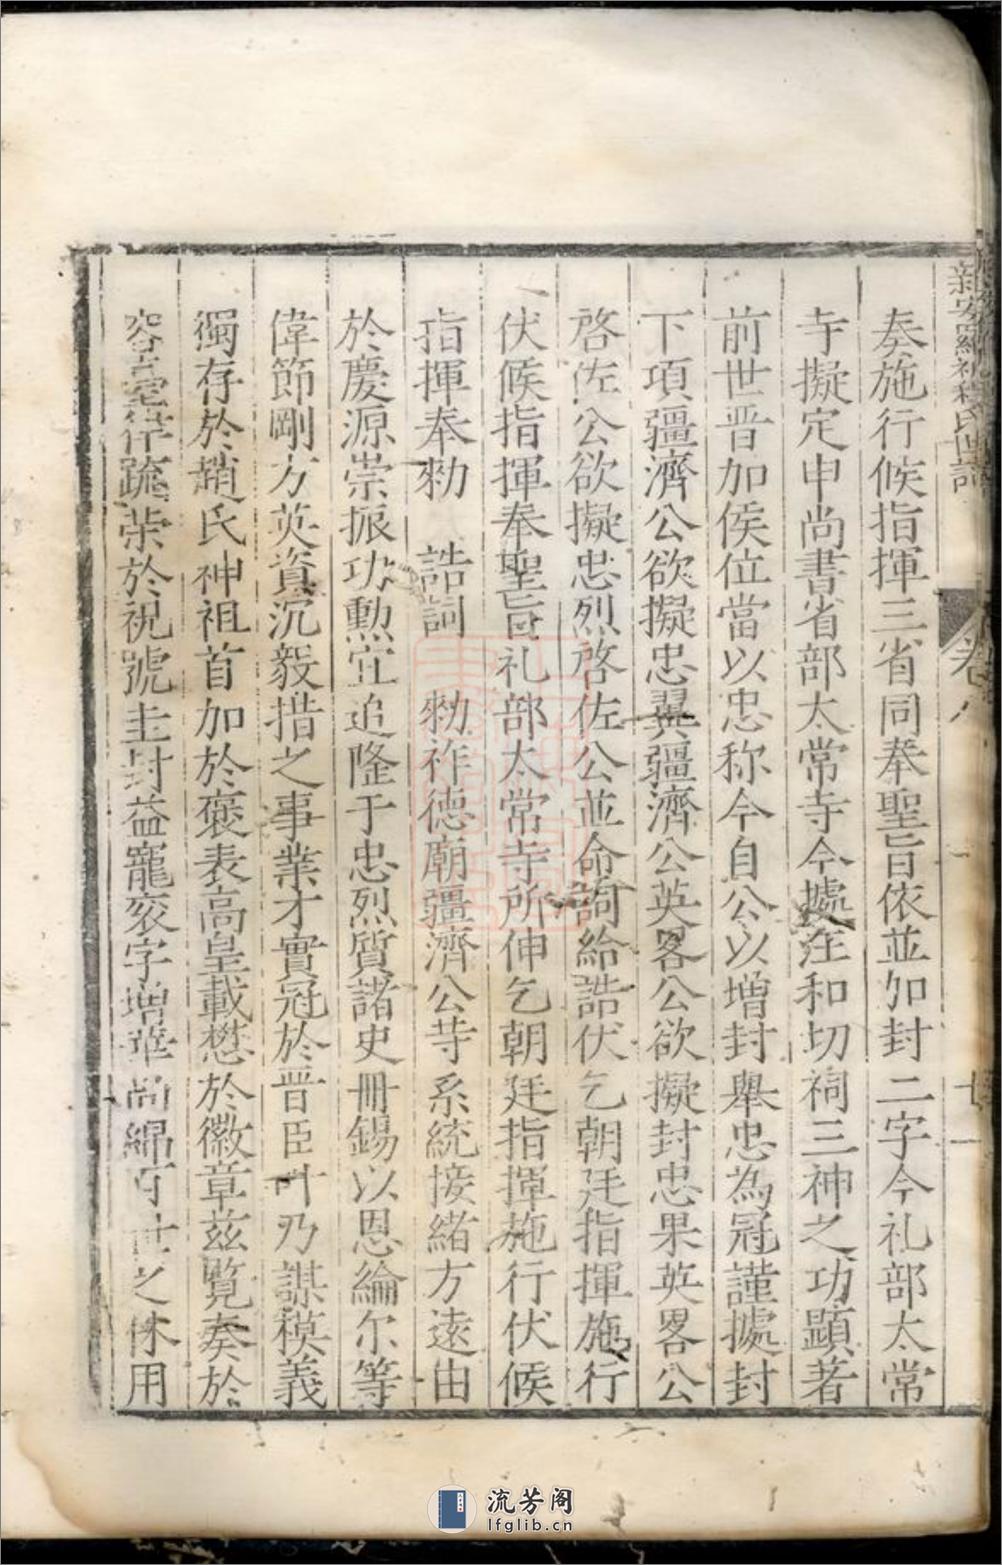 新安羅祝程氏世譜 卷八
奏施行候指揮三省同奉聖旨依並加封二字今礼部太常
寺擬定申尚書省部太常寺今據汪和切祠三神之功顯著
前世晋加侯位當以忠称今自公以增封舉忠為冠謹據封
下項疆濟公欲擬忠翼疆濟公英畧公欲擬封忠果英畧公
啓佐公欲擬忠烈啓佐公並命詞給誥伏乞朝廷指揮施行
伏候指揮奉聖旨礼部太常寺所伸乞朝廷指揮施行伏候
指揮奉勑 誥詞 勑祚德廟疆濟公寺系統接緒方遠由
於慶源崇振功勲宜追隆于忠烈質諸史冊錫以恩綸尔等
偉節剛方英資沉毅措之事業才實冠於晋臣叶乃謀稬義
獨存於趙氏神祖首加於褒表高皇載懋於徽章茲覽奏於
容臺徃疏荣於祝號圭封益寵衮字增華尚綿百世之休用
流芳阁
lfglib.cn